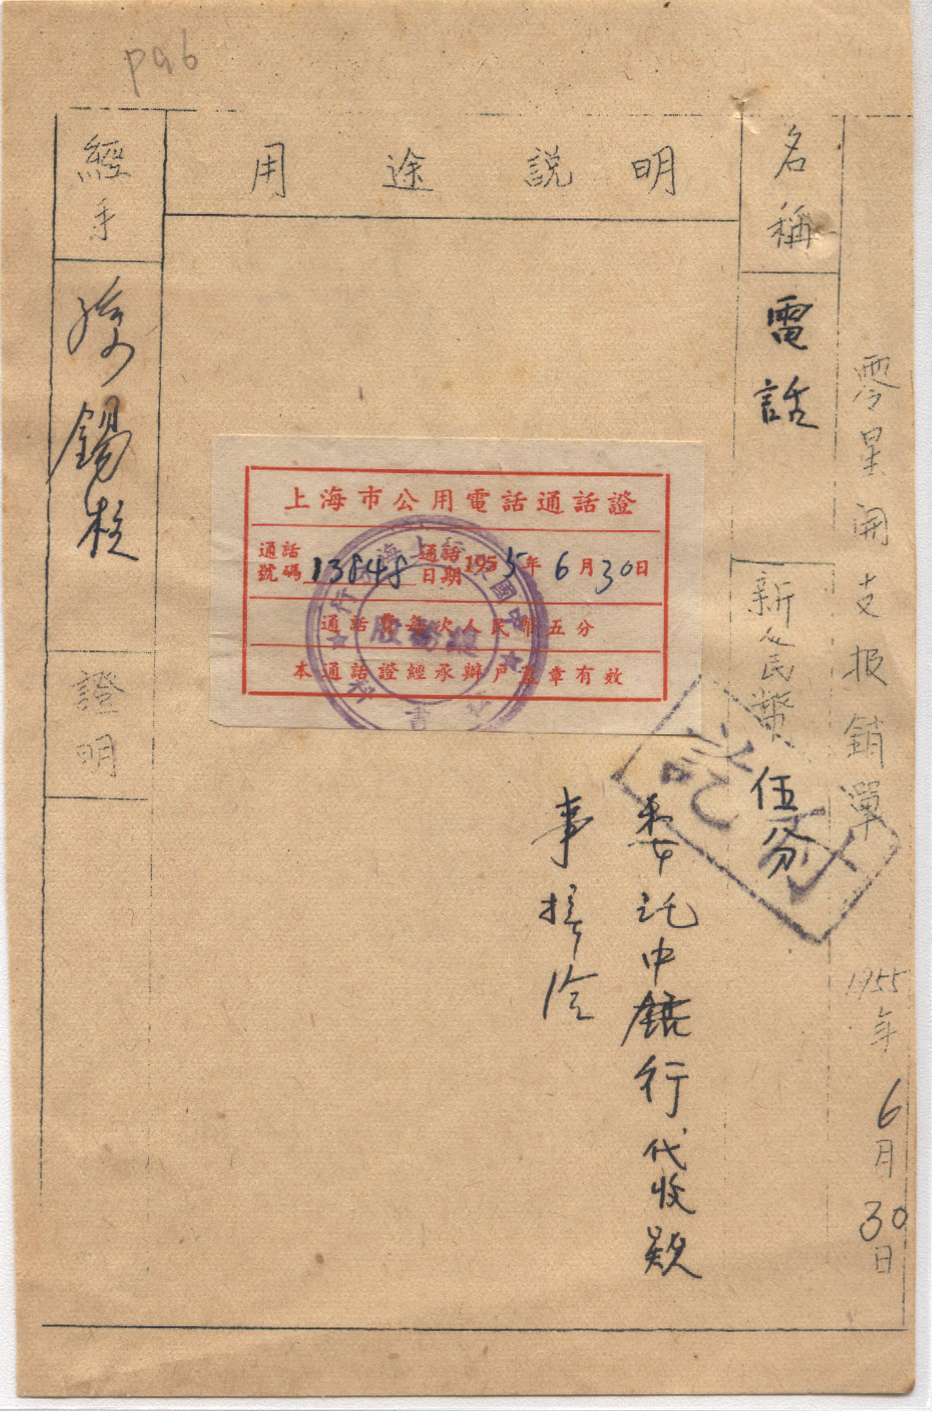 p96
零星開支报銷單 1955年6月30日
名稱
電話
新人民幣
伍分
用途説明
上海市公用電話通話證
通話號碼 13848 通話日期 1955年6月30日
通話費每次人民幣五分
本通話證經承辦戶蓋章有效
委託中銀行代收款
事接洽
付訖
經手
錫
證明